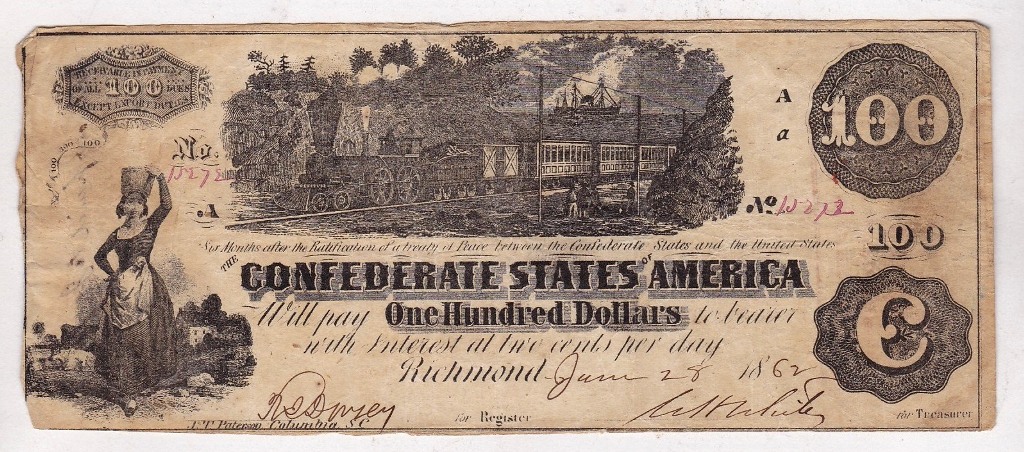 RECEIVABLE IN PAYMENT
OF ALL 100 DUES
EXCEPT EXPORT DUTIES
100 100
No.
A
A
a
100
No.
Six Months after the Ratification of a treaty of Peace between the Confederate States and the United States
100
THE CONFEDERATE STATES OF AMERICA
Will pay One Hundred Dollars to bearer
with Interest at two cents per day
C
Richmond June 28 1862
for Register
for Treasurer
J.T. Paterson Columbia S.C.